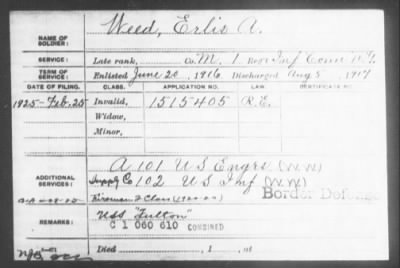 NAME OF SOLDIER: Weed, Erlis A.
SERVICE: Late rank, Co. M, 1 Reg't Inf Conn N.G.
TERM OF SERVICE: Enlisted June 20, 1916, Discharged Aug 5, 1917
DATE OF FILING. CLASS. APPLICATION NO. LAW. CERTIFICATE NO.
1925-Feb. 25 Invalid, 1515405 R.E.
Widow,
Minor,
ADDITIONAL SERVICES: A 101 US Engrs (W.W)
Supply Co 102 US Inf (W.W)
Fireman Class Border Defense
REMARKS: USS "Fulton"
C 1 060 610 COMBINED
Died , 1 , at